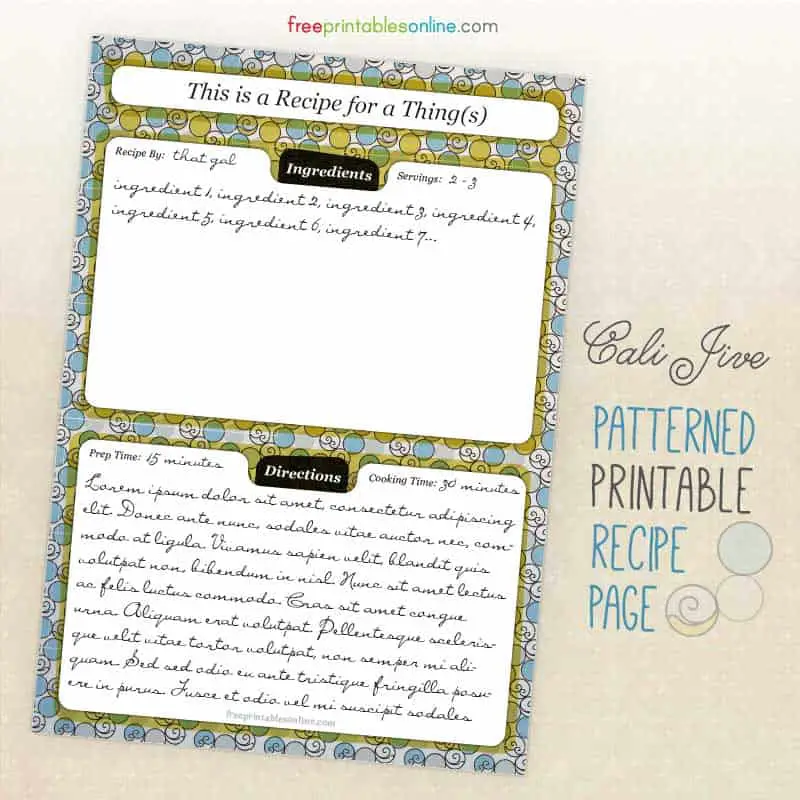 freeprintablesonline.com
This is a Recipe for a Thing(s)
Recipe By: that gal
Ingredients
Servings: 2 - 3
ingredient 1, ingredient 2, ingredient 3, ingredient 4,
ingredient 5, ingredient 6, ingredient 7...
Prep Time: 15 minutes
Directions
Cooking Time: 30 minutes
Lorem ipsum dolor sit amet, consectetur adipiscing
elit. Donec ante nunc, sodales vitae auctor nec, com-
modo at ligula. Vivamus sapien velit, blandit quis
volutpat non, bibendum in nisl. Nunc sit amet lectus
ac felis luctus commodo. Cras sit amet congue
urna. Aliquam erat volutpat. Pellentesque sceleris-
que velit vitae tortor volutpat, non semper mi ali-
quam. Sed sed odio eu ante tristique fringilla posu-
ere in purus. Fusce et odio vel mi suscipit sodales
freeprintablesonline.com
Cali Jive
PATTERNED
PRINTABLE
RECIPE
PAGE